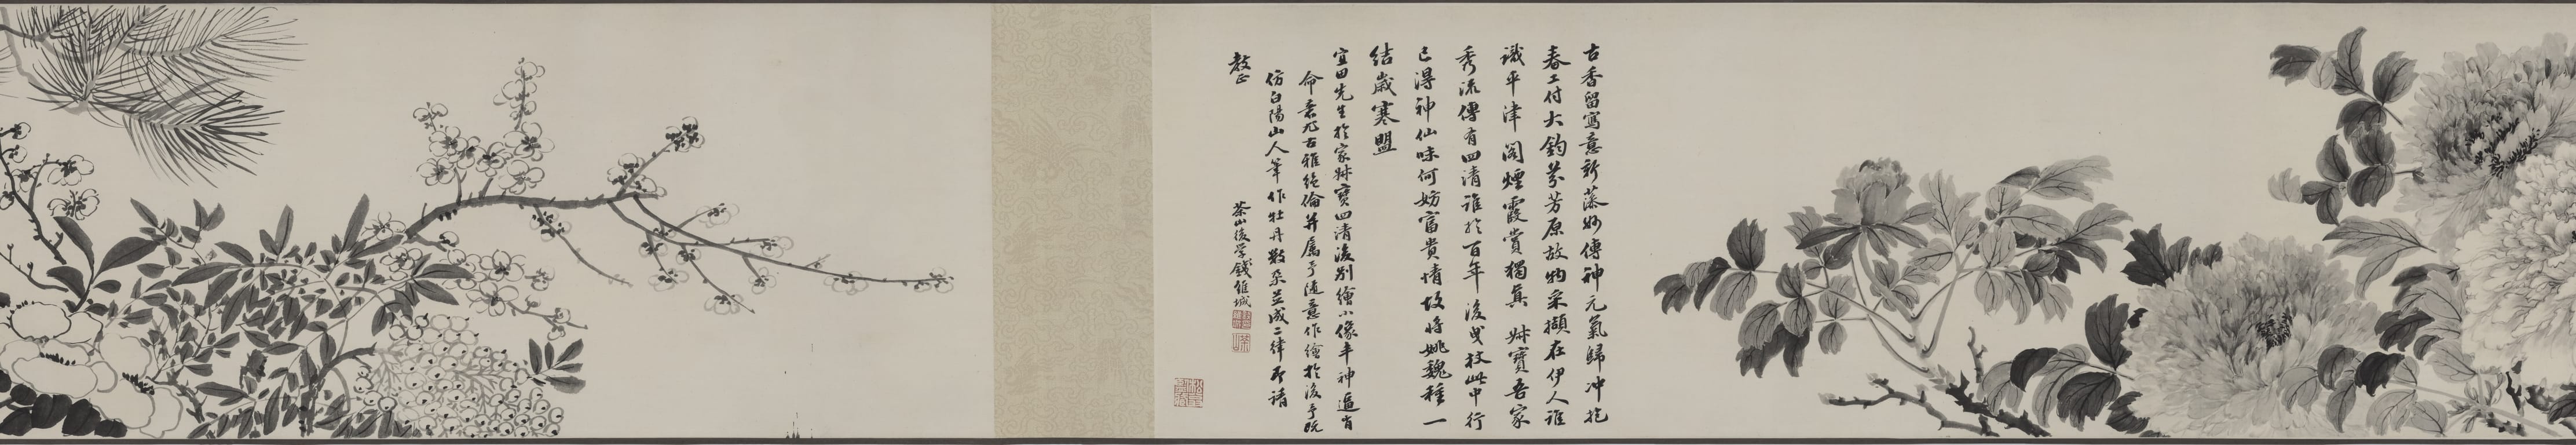 古香留寫意新藻妙傳神元氣歸冲抱
春工付大鈞芬芳原故物采擷在伊人誰
識平津閣煙霞賞獨真 姊寶吾家
秀流傳有四清誰於百年後曳杖此中行
已得神仙味何妨富貴情故將姚魏種一
結歲寒盟
宜田先生於家姊寶四清後別繪小像丰神逼肖
命意尤古雅絕倫并屬予隨意作繪於後予既
仿白陽山人筆作牡丹數朶並成二律即請
教正
茶山後學錢維城